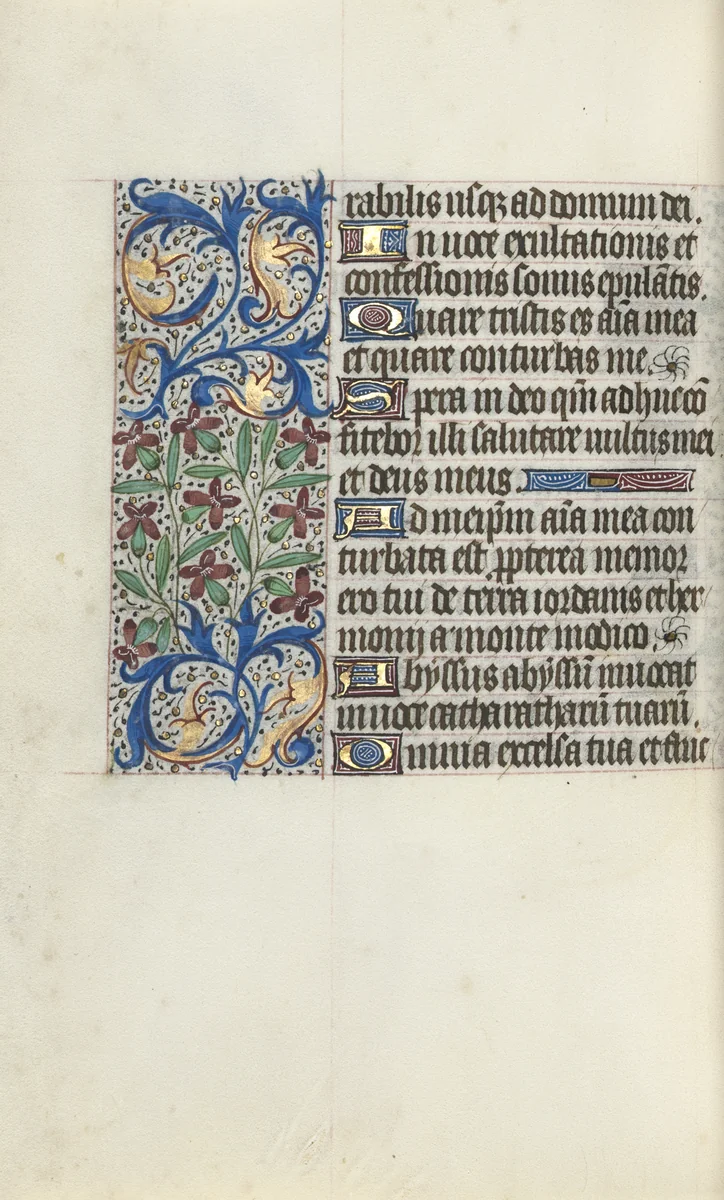 rabilis usqꝫ ad domum dei.
In uoce exultationis et
confessionis sonus epulātis.
Quare tristis es aīa mea
et quare conturbas me.
Spera in deo qm̄ adhuc cō
fitebor illi salutare uultus mei
et deus meus.
Ad meip̄m aīa mea con
turbata est. ꝓpterea memor
ero tui de terra iordanis et her
monij a monte modico.
Abyssus abyssū inuocat
in uoce catharatharū tuarū.
Omnia excelsa tua et fluc